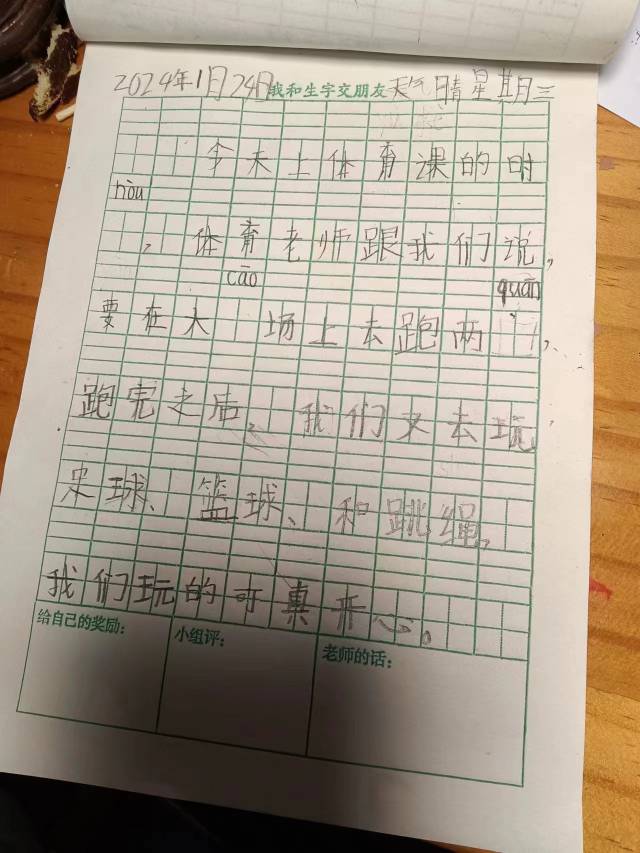 2024年1月24日 我和生字交朋友 天气晴 星期三
今天上体育课的时
hòu
，体育老师跟我们说，
cāo quān
要在大 场上去跑两 ，
跑完之后，我们又去玩
足球、篮球、和跳绳。
我们玩的可真开心。
给自己的奖励： 小组评： 老师的话：